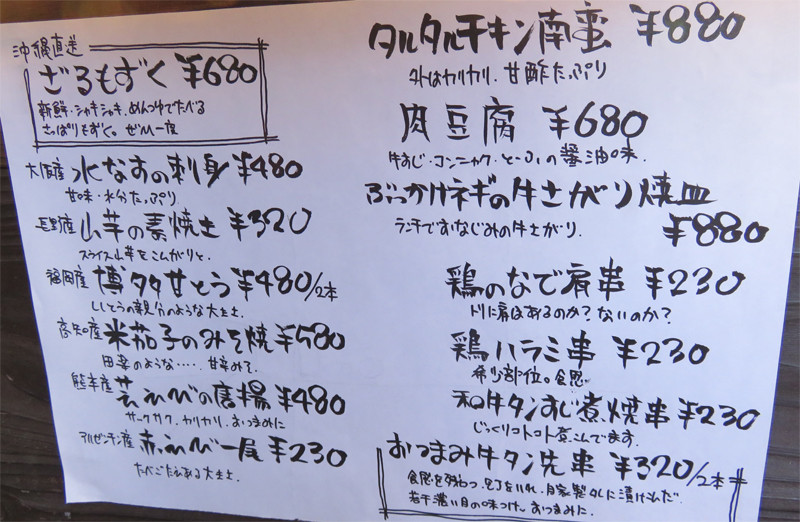 沖縄直送
ざるもずく ¥680
新鮮・シャキシャキ、めんつゆでたべる
さっぱりもずく。ぜひ一度
大阪産 水なすの刺身 ¥480
甘味・水分たっぷり
長野産 山芋の素焼き ¥320
スライス山芋をこんがりと。
福岡産 博多甘とう ¥480/2本
ししとうの親分のような大きさ
高知産 米茄子のみそ焼 ¥580
田楽のような‥‥、甘辛みそ。
熊本産 芝えびの唐揚 ¥480
サクサク、カリカリ、おつまみに
アルゼンチン産 赤えび一尾 ¥230
たべごたえある大きさ。
タルタルチキン南蛮 ¥880
外はカリカリ、甘酢たっぷり
肉豆腐 ¥680
牛すじ・コンニャク・とーふの醤油味。
ぶっかけネギの牛さがり焼皿
¥880
ランチでおなじみの牛さがり。
鶏のなで肩串 ¥230
トリに肩はあるのか?ないのか?
鶏ハラミ串 ¥230
希少部位の食感。
和牛タンすじ煮焼串 ¥230
じっくりコトコト煮こんでます。
おつまみ牛タン先串 ¥320/2本
食感を残しつつ、包丁をいれ、自家製タレに漬けこんだ
若干濃い目の味つけ。おつまみに。